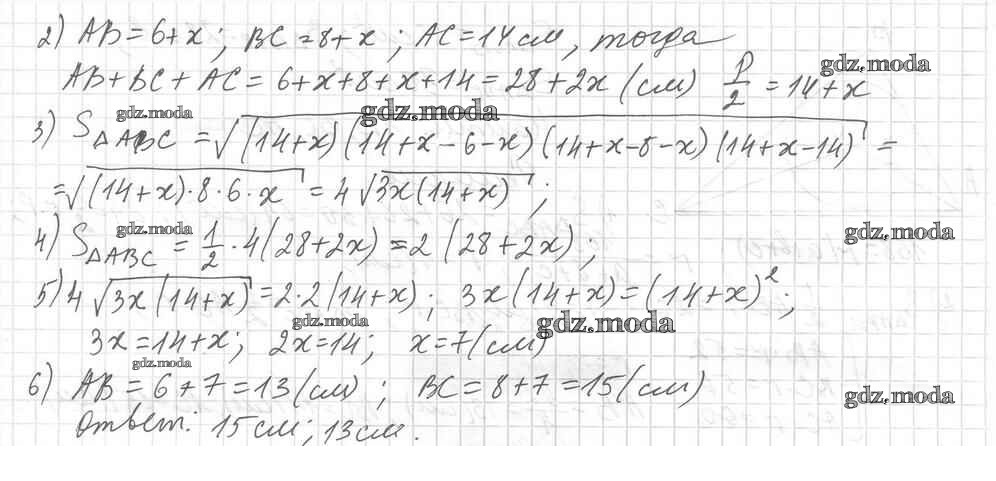 2) AB = 6+x; BC = 8+x; AC = 14 см, тогда
gdz.moda
AB + BC + AC = 6+x+8+x+14 = 28+2x (см) P/2 = 14+x
gdz.moda gdz.moda
3) S△ABC = √((14+x)(14+x-6-x)(14+x-8-x)(14+x-14)) =
= √((14+x)·8·6·x) = 4√(3x(14+x));
gdz.moda gdz.moda
4) S△ABC = 1/2 · 4(28+2x) = 2(28+2x);
5) 4√(3x(14+x)) = 2·2(14+x); 3x(14+x) = (14+x)²;
gdz.moda gdz.moda
3x = 14+x; 2x = 14; x = 7 (см)
gdz.moda
6) AB = 6+7 = 13 (см); BC = 8+7 = 15 (см)
gdz.moda
Ответ: 15 см; 13 см.